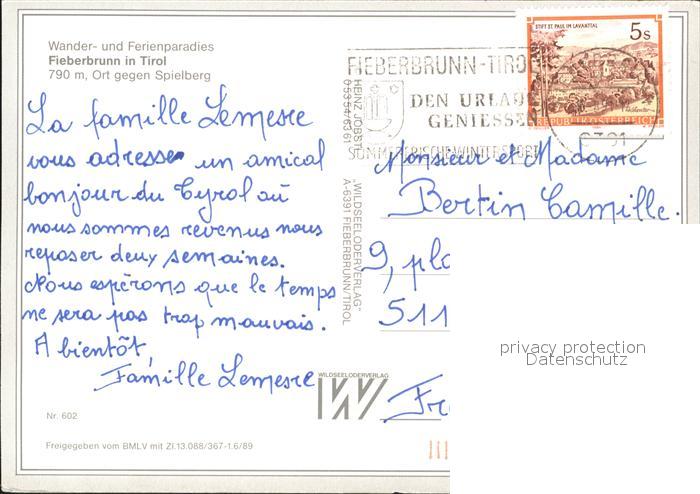 Wander- und Ferienparadies
Fieberbrunn in Tirol
790 m, Ort gegen Spielberg
La famille Lemesre
vous adresse un amical
bonjour du Tyrol où
nous sommes revenus nous
reposer deux semaines.
Nous espérons que le temps
ne sera pas trop mauvais.
A bientôt,
Famille Lemesre
Nr. 602
Freigegeben vom BMLV mit Zl.13.088/367-1.6/89
HEINZ JOBST
"WILDSEELODERVERLAG"
A-6391 FIEBERBRUNN/TIROL
WILDSEELODERVERLAG
FIEBERBRUNN-TIROL
DEN URLAUB
GENIESSEN
STIFT ST. PAUL IM LAVANTTAL
5s
REPUBLIK ÖSTERREICH
Monsieur et Madame
Bertin Camille.
9, pla
511
Fr
privacy protection
Datenschutz